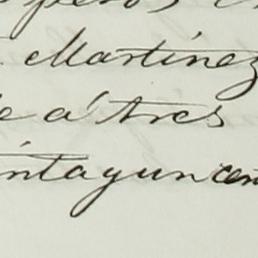 pesos
Martinez
e a' tres
intayun cen